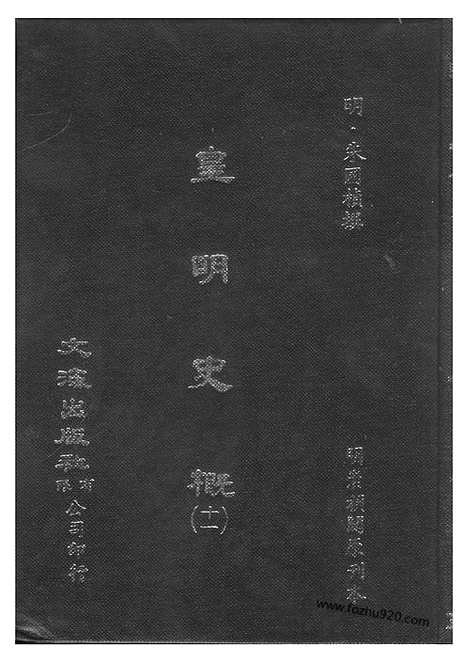 明·朱國禎撰
明崇禎間原刊本
皇明史概(十一)
文海出版社有限公司印行
www.fozhu920.com